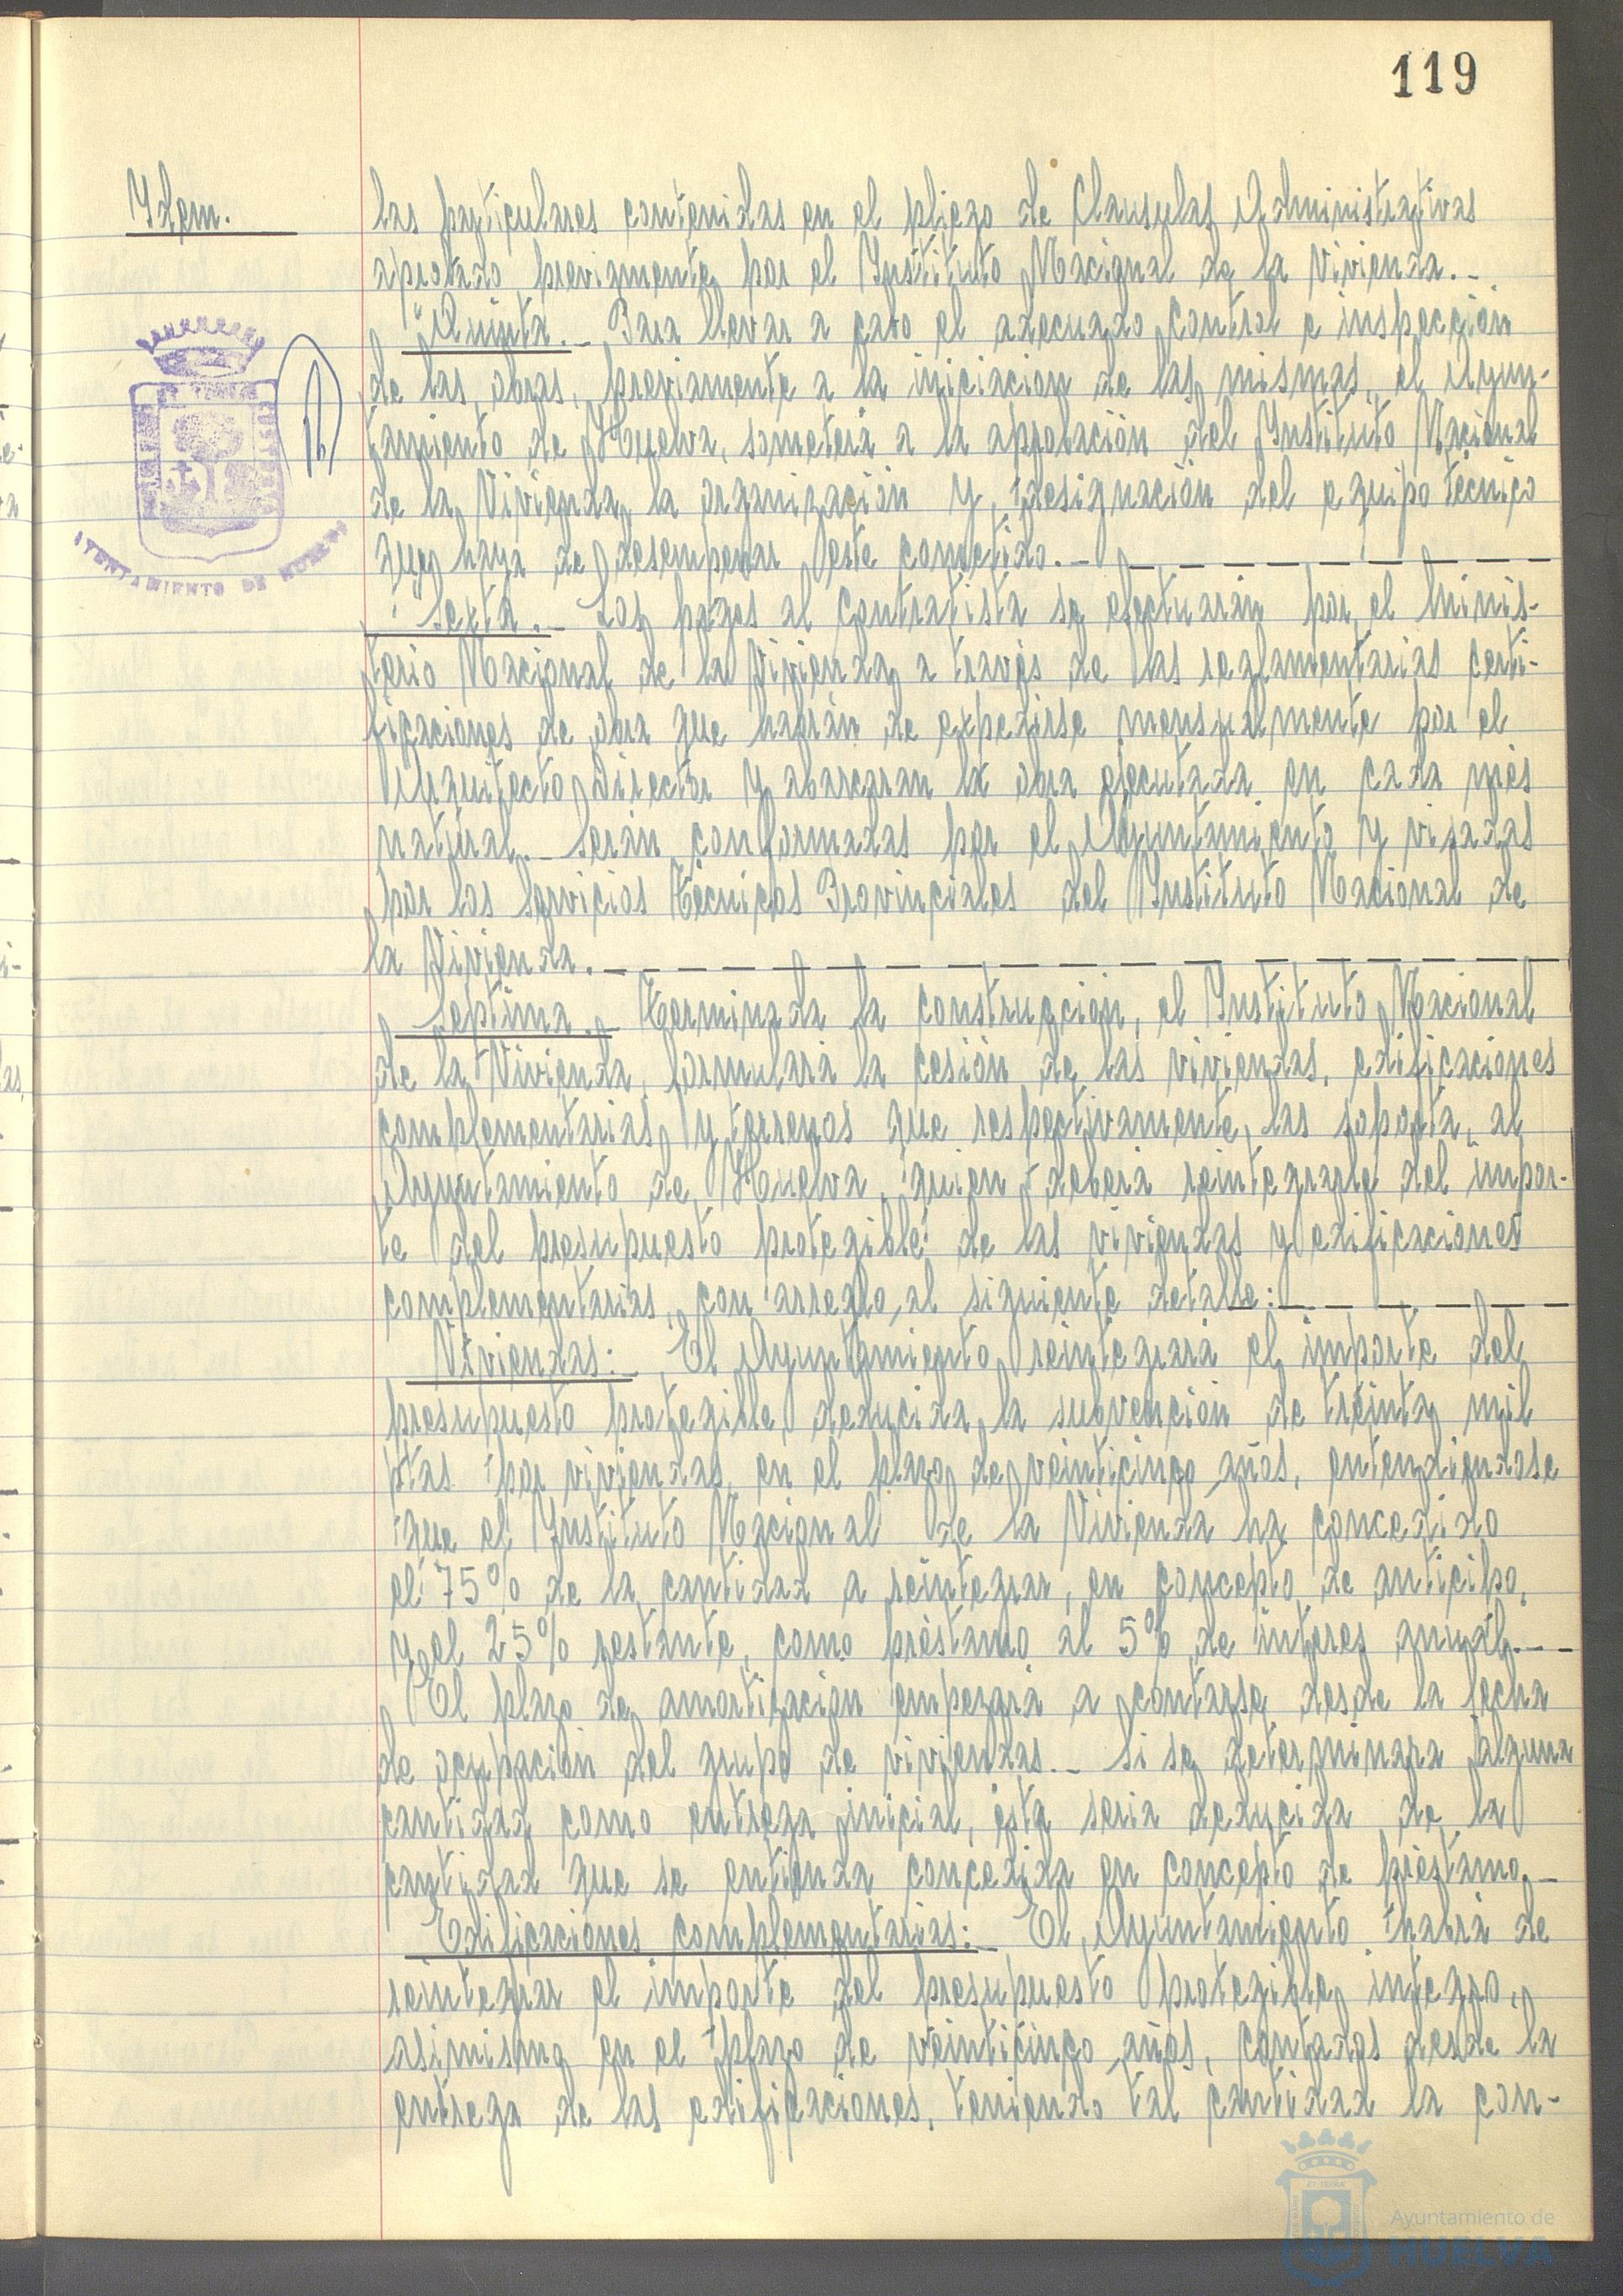 119
Idem.
las particulares contenidas en el pliego de Clausulas Administrativas
aprobado previamente por el Instituto Nacional de la Vivienda.-
"Quinta.- Para llevar a cabo el adecuado control e inspección
de las obras, previamente a la iniciacion de las mismas, el Ayun-
tamiento de Huelva, someterá a la aprobación del Instituto Nacional
de la Vivienda la organización y designación del equipo técnico
que haya de desempeñar este cometido.-
AYUNTAMIENTO DE HUELVA
Sexta.- Los pagos al contratista se efectuarán por el Minis-
terio Nacional de la Vivienda a través de las reglamentarias certi-
ficaciones de obra que habrán de expedirse mensualmente por el
Arquitecto Director y abarcaran la obra ejecutada en cada mes
natural.- Serán conformadas por el Ayuntamiento y visadas
por los Servicios Técnicos Provinciales del Instituto Nacional de
la Vivienda.-
Séptima.- Terminada la construcción, el Instituto Nacional
de la Vivienda, formulará la cesión de las viviendas, edificaciones
complementarias y terrenos que respectivamente, las soporta, al
Ayuntamiento de Huelva, quien deberá reintegrarle del impor-
te del presupuesto protegible de las viviendas y edificaciones
complementarias, con arreglo al siguiente detalle:-
Viviendas:- El Ayuntamiento reintegrará el importe del
presupuesto protegible, deducida la subvención de treinta mil
ptas por viviendas, en el plazo de veinticinco años, entendiendose
que el Instituto Nacional de la Vivienda ha concedido
el 75% de la cantidad a reintegrar, en concepto de anticipo,
y el 25% restante, como préstamo al 5% de interes anual.-
El plazo de amortización empezará a contarse desde la fecha
de ocupación del grupo de viviendas.- Si se determinara alguna
cantidad como entrega inicial, ésta seria deducida de la
cantidad que se entienda concedida en concepto de préstamo.-
Edificaciones complementarias:- El Ayuntamiento habrá de
reintegrar el importe del presupuesto protegible integro,
asimismo en el plazo de veinticinco años, contados desde la
entrega de las edificaciones, teniendo tal cantidad la con-
Ayuntamiento de
HUELVA